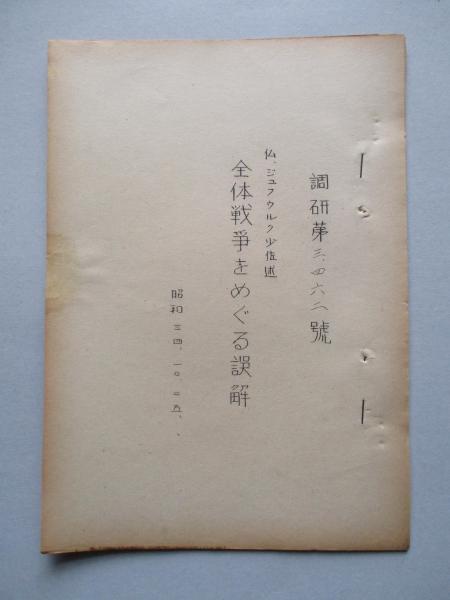 調研第三、四六二號
仏、ジュフウルク少佐述
全体戦爭をめぐる誤解
昭和三四、一〇、二五、